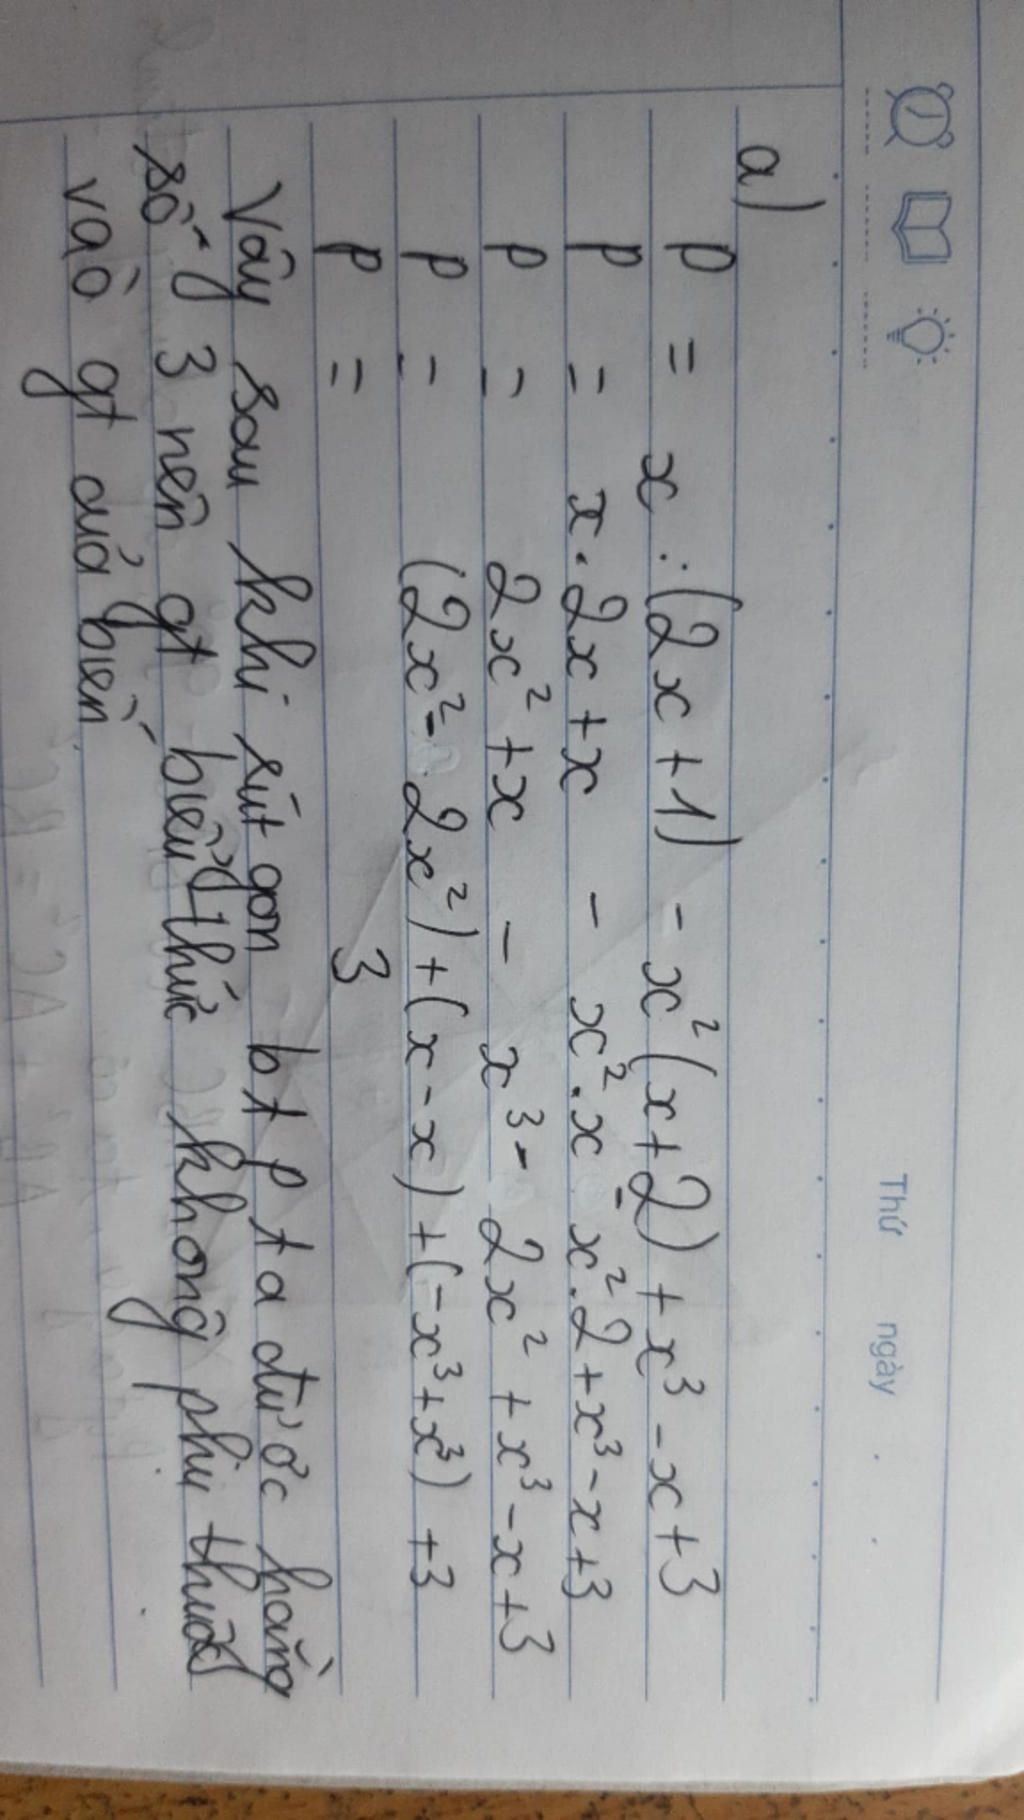 Thứ ngày
a)
P = x.(2x+1) - x²(x+2) + x³ - x + 3
P = x.2x + x - x².x - x².2 + x³ - x + 3
P = 2x² + x - x³ - 2x² + x³ - x + 3
P = (2x² - 2x²) + (x - x) + (-x³ + x³) + 3
P = 3
Vậy sau khi rút gọn bt P ta được hằng
số 3 nên gt biểu thức không phụ thuộc
vào gt của biến